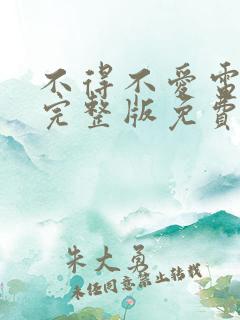 不得不愛雷
完整版免費
朱大勇
未任同意禁止转载